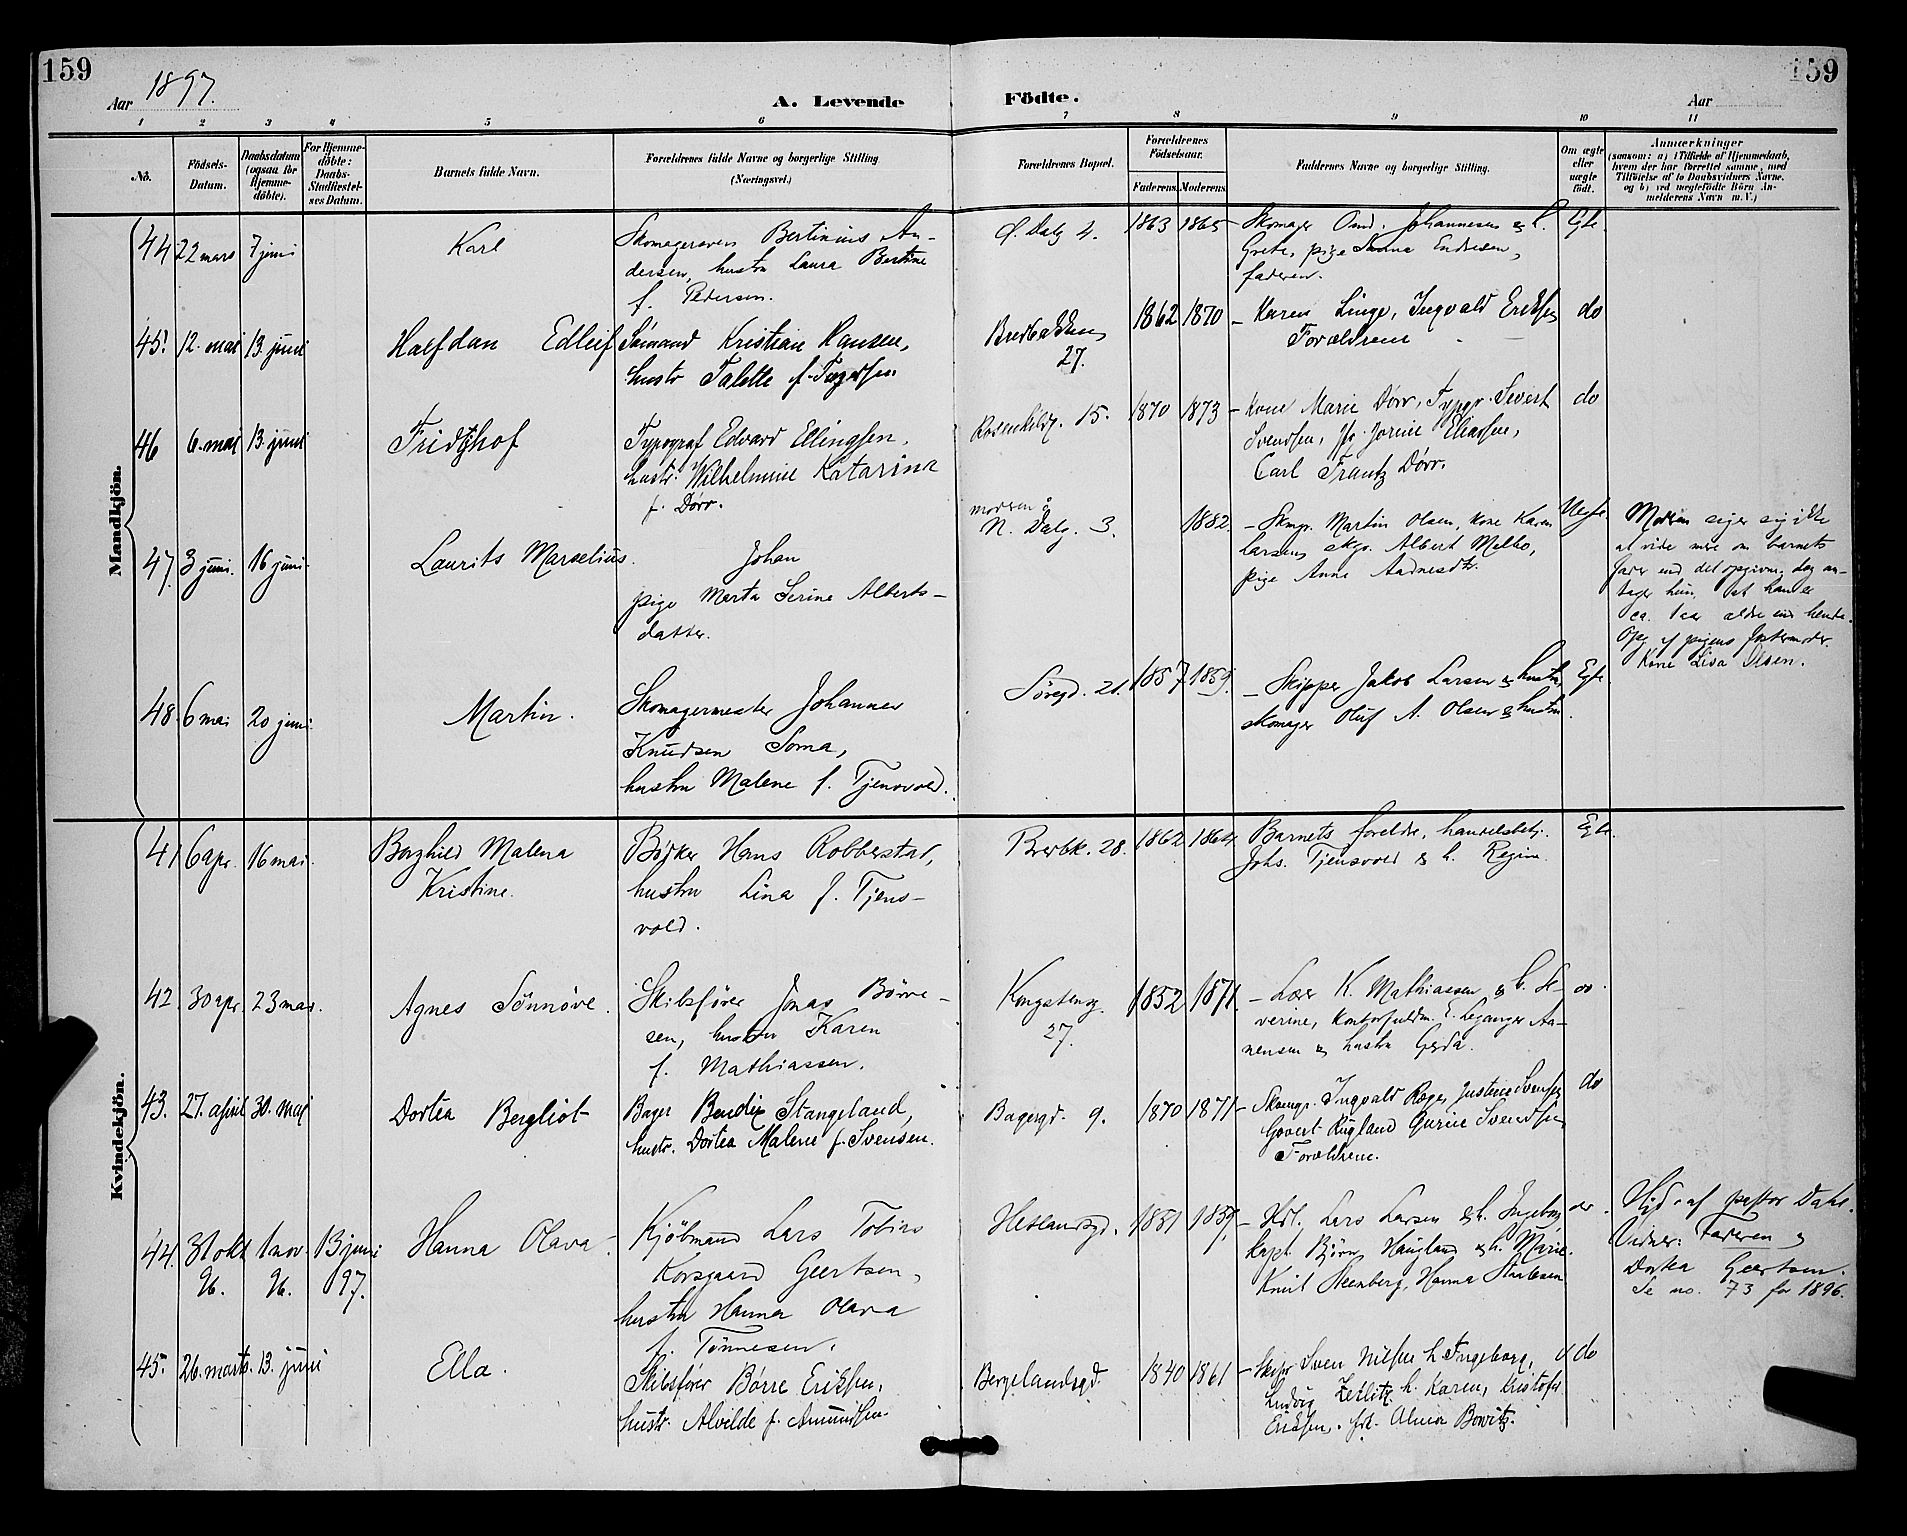 159
159
Aar 1897.
A. Levende Födte.
Aar
1 2 3 4 5 6 7 8 9 10 11
No.
Födsels-Datum.
Daabsdatum (ogsaa for Hjemme-döbte).
For Hjemme-döbte: Daabs-Stadfæstel-ses Datum.
Barnets fulde Navn.
Forældrenes fulde Navne og borgerlige Stilling (Næringsvei.)
Forældrenes Bopæl.
Forældrenes Födselsaar.
Faderens. Moderens.
Faddernes Navne og borgerlige Stilling.
Om ægte eller uægte födt.
Anmærkninger
(saasom: a) i Tilfælde af Hjemmedaab,
hvem der har forrettet samme, med
Tilföielse af to Daabsvidners Navne.
og b) ved uægtefödte Börn An-
melderens Navn m. V.)
Mandkjön.
44 22 mars 7 juni Karl
Skomagersvend Bertinius An-
dersen, hustru Laura Bertine
f. Pedersen.
Dalg 4. 1863 1865
Skomager Johannesen & h.
Grete, pige Endresen,
faderen.
Egte.
45. 12. mai 13. juni Halfdan Edleif
Sömand Kristian Hansen,
hustr Talette f.
Bredbakken
27.
1862 1870
Karen Linge, Ingvald Eriksen
Forældrene
do
46 6. mai 13. juni Fridtjhof
Typograf Edvard Ellingsen,
hustr. Wilhelmine Katarina
f. Dörr.
15. 1870 1873
Kone Marie Dörr, Typgr. Sivert
Svendsen, Jorine Eliassen,
Carl Frantz Dörr.
do
47. 3 juni. 16 juni Laurits Marselius.
Johan
pige Marta Serine Alberts-
datter.
moderen
N. Dalg. 3. 1882
Martin Olsen, kone Karen
Larsen, Albert Melbo,
pige Anne Aadnesdtr.
Uegte.
Moderen siger sig ikke
at vide mere om barnets
fader end det opgivne, dog an-
tager hun, at han er
ca. 1 aar ældre end hende.
Opg. af pigens fostermoder.
Kone Lisa Olsen.
48. 6 mai 20 juni. Martin.
Skomagermester Johannes
Knudsen Soma,
hustru Malene f. Tjensvold.
21. 1857 1859.
Skipper Jakob Larsen & hustru
skomager Oluf A. Olsen & hustru.
Egte.
Kvindekjön.
41 6 apr. 16 mai. Borghild Malena
Kristine.
Bödker Hans Robberstad,
hustru Lina f. Tjens-
vold.
Bredbk. 28. 1862 1864
Barnets foreldre, handelsbetj.
Johs. Tjensvold & h. Regine.
Egte.
42. 30 apr. 23 mai. Agnes Sönnöve.
Skibsförer Jonas Börre-
sen, hustru Karen
f. Mathiassen.
Kongstensg.
27.
1852 1871.
K. Mathiassen & h. Se-
verine, kontorfuldm. E. Leganger Aa-
nensen & hustru Gyda.
do.
43. 27. april 30. mai Dortea Bergliot
Bager Bendix Stangeland,
hustr. Dortea Malene f. Svensen.
Bagergd. 9. 1870 1871
Ingvald Rage, Justine Svensen
Govert Rugland Gurine Svendsen
Forældrene.
do
44. 31 okt 1 nov. 13 juni Hanna Olava.
96. 96. 97.
Kjöbmand Lars Tobias
Korsgaard Geertsen,
hustru Hanna Olava
f. Tönnesen.
Hetlandsgd. 1851 1859.
Lars Larsen & h. Ingeborg
kapt. Björn Haugland & h. Marie.
Knut Steenberg, Hanna Staalesen
do.
Hjd. af pastor Dahl.
Vidner: Faderen &
Dortea Geertsen.
Se no. 73 for 1896.
45. 26. marts. 13. juni Ella.
Skibsförer Börre Eriksen,
hustr. Alvilde f. Amundsen.
Bergelandsgd. 1840 1861
Skipr Sven Nilsen h. Ingeborg,
Ludvig Zetlitz h. Karen, Kristofer
Eriksen, frk. Alma Bowitz.
do